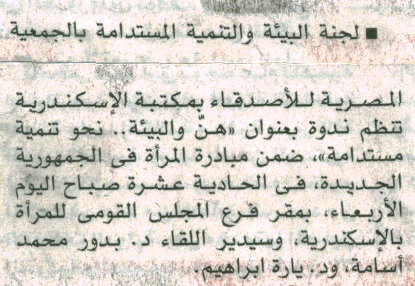 ■ لجنة البيئة والتنمية المستدامة بالجمعية
المصرية للأصدقاء بمكتبة الإسكندرية
تنظم ندوة بعنوان «هنّ والبيئة.. نحو تنمية
مستدامة»، ضمن مبادرة المرأة فى الجمهورية
الجديدة، فى الحادية عشرة صباح اليوم
الأربعاء، بمقر فرع المجلس القومى للمرأة
بالإسكندرية، وسيدير اللقاء د. بدور محمد
أسامة، ود. يارة ابراهيم.